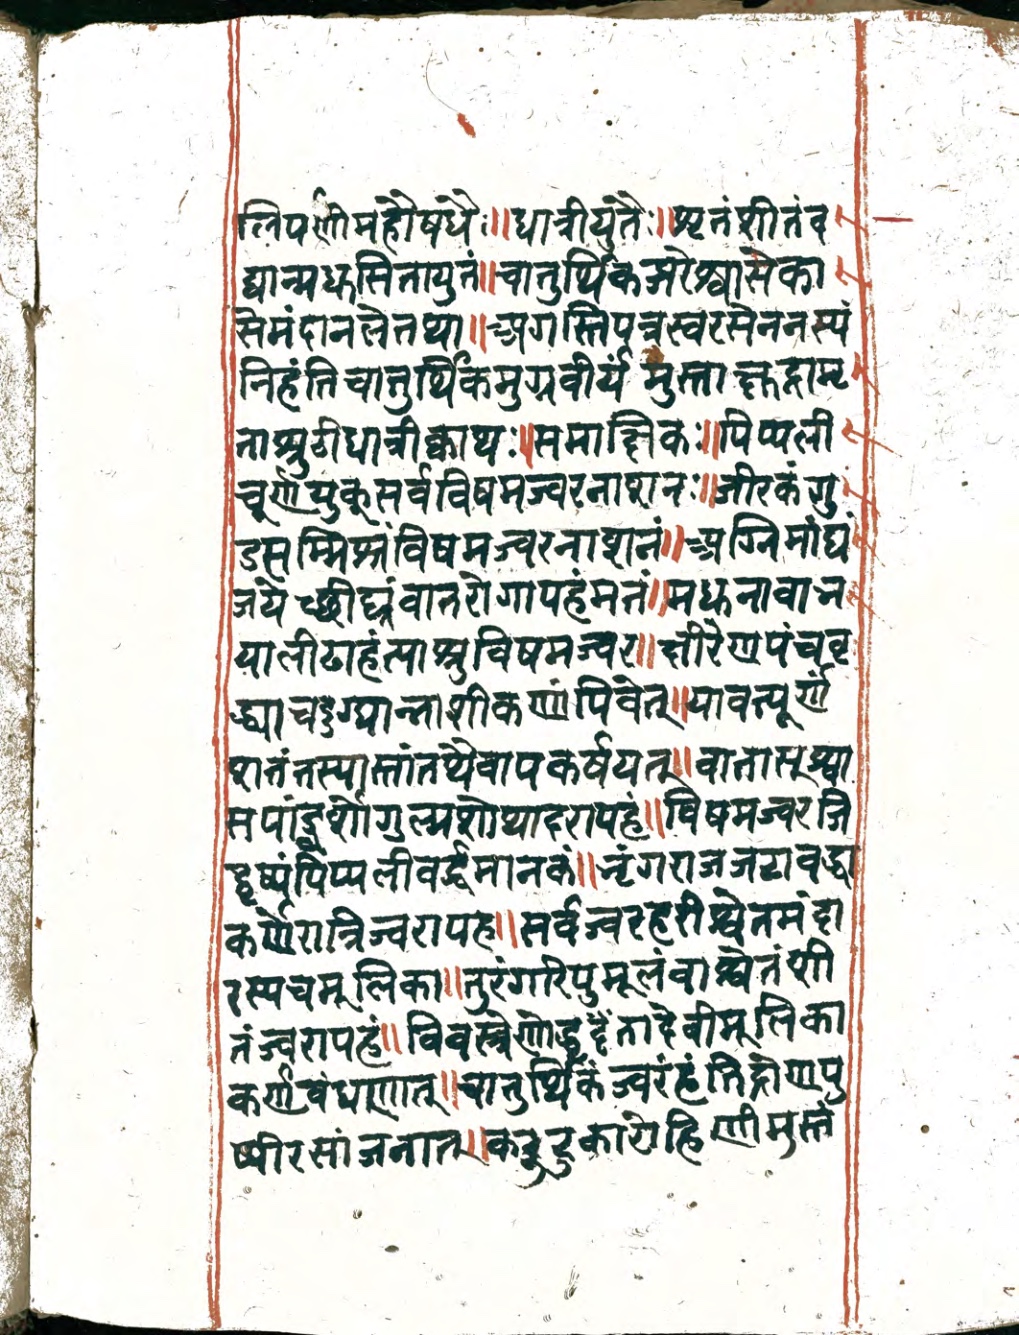 लिपर्णीमहौषधैः॥धात्रीयुतैः॥शृतंशीतंद
द्यान्मधुसितायुतं॥चातुर्थिकज्वरेश्वासेका
सेमंदानलेतथा॥अगस्तिपत्रस्वरसेननस्यं
निहंतिचातुर्थिकमुग्रवीर्यं मुस्ताक्षुद्रामृ
ताशुठीधात्रीक्वाथः॥समाक्षिकः॥पिप्पली
चूर्णयुक्सर्वविषमज्वरनाशनः॥जीरकंगु
डसम्मिश्रंविषमज्वरनाशनं॥अग्निमांद्यं
जयेच्छीघ्रंवातरोगापहंमतं॥मधुनावाभ
यालीढाहंत्याशुविषमज्वर॥क्षीरेणपंचवृ
द्ध्या कणांपिवेत्॥यावत्पूर्णं
शतंतस्यास्तांतथैवापकर्षयेत्॥वातासृश्वा
सपांडूर्शोगुल्मशोथोदरापहं॥विषमज्वरजि
द्वृष्यंपिप्पलीवर्द्धमानकं॥भृंगराजजटावद्धा
कर्णेरात्रिज्वरापह॥सर्वज्वरहरीश्वेतमंदा
रस्यचमूलिका॥तुरंगरिपुमूलंवाश्वेतंशी
तंज्वरापहं॥विवस्त्रेणोद्धृतादेवीमूलिका
कर्णवंधाणात्॥चातुर्थिकंज्वरंहंतिद्रोणपु
ष्पीरसांजनात्॥ रोहिणीमुस्तं